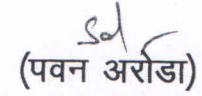 Sd/
(पवन अरोडा)